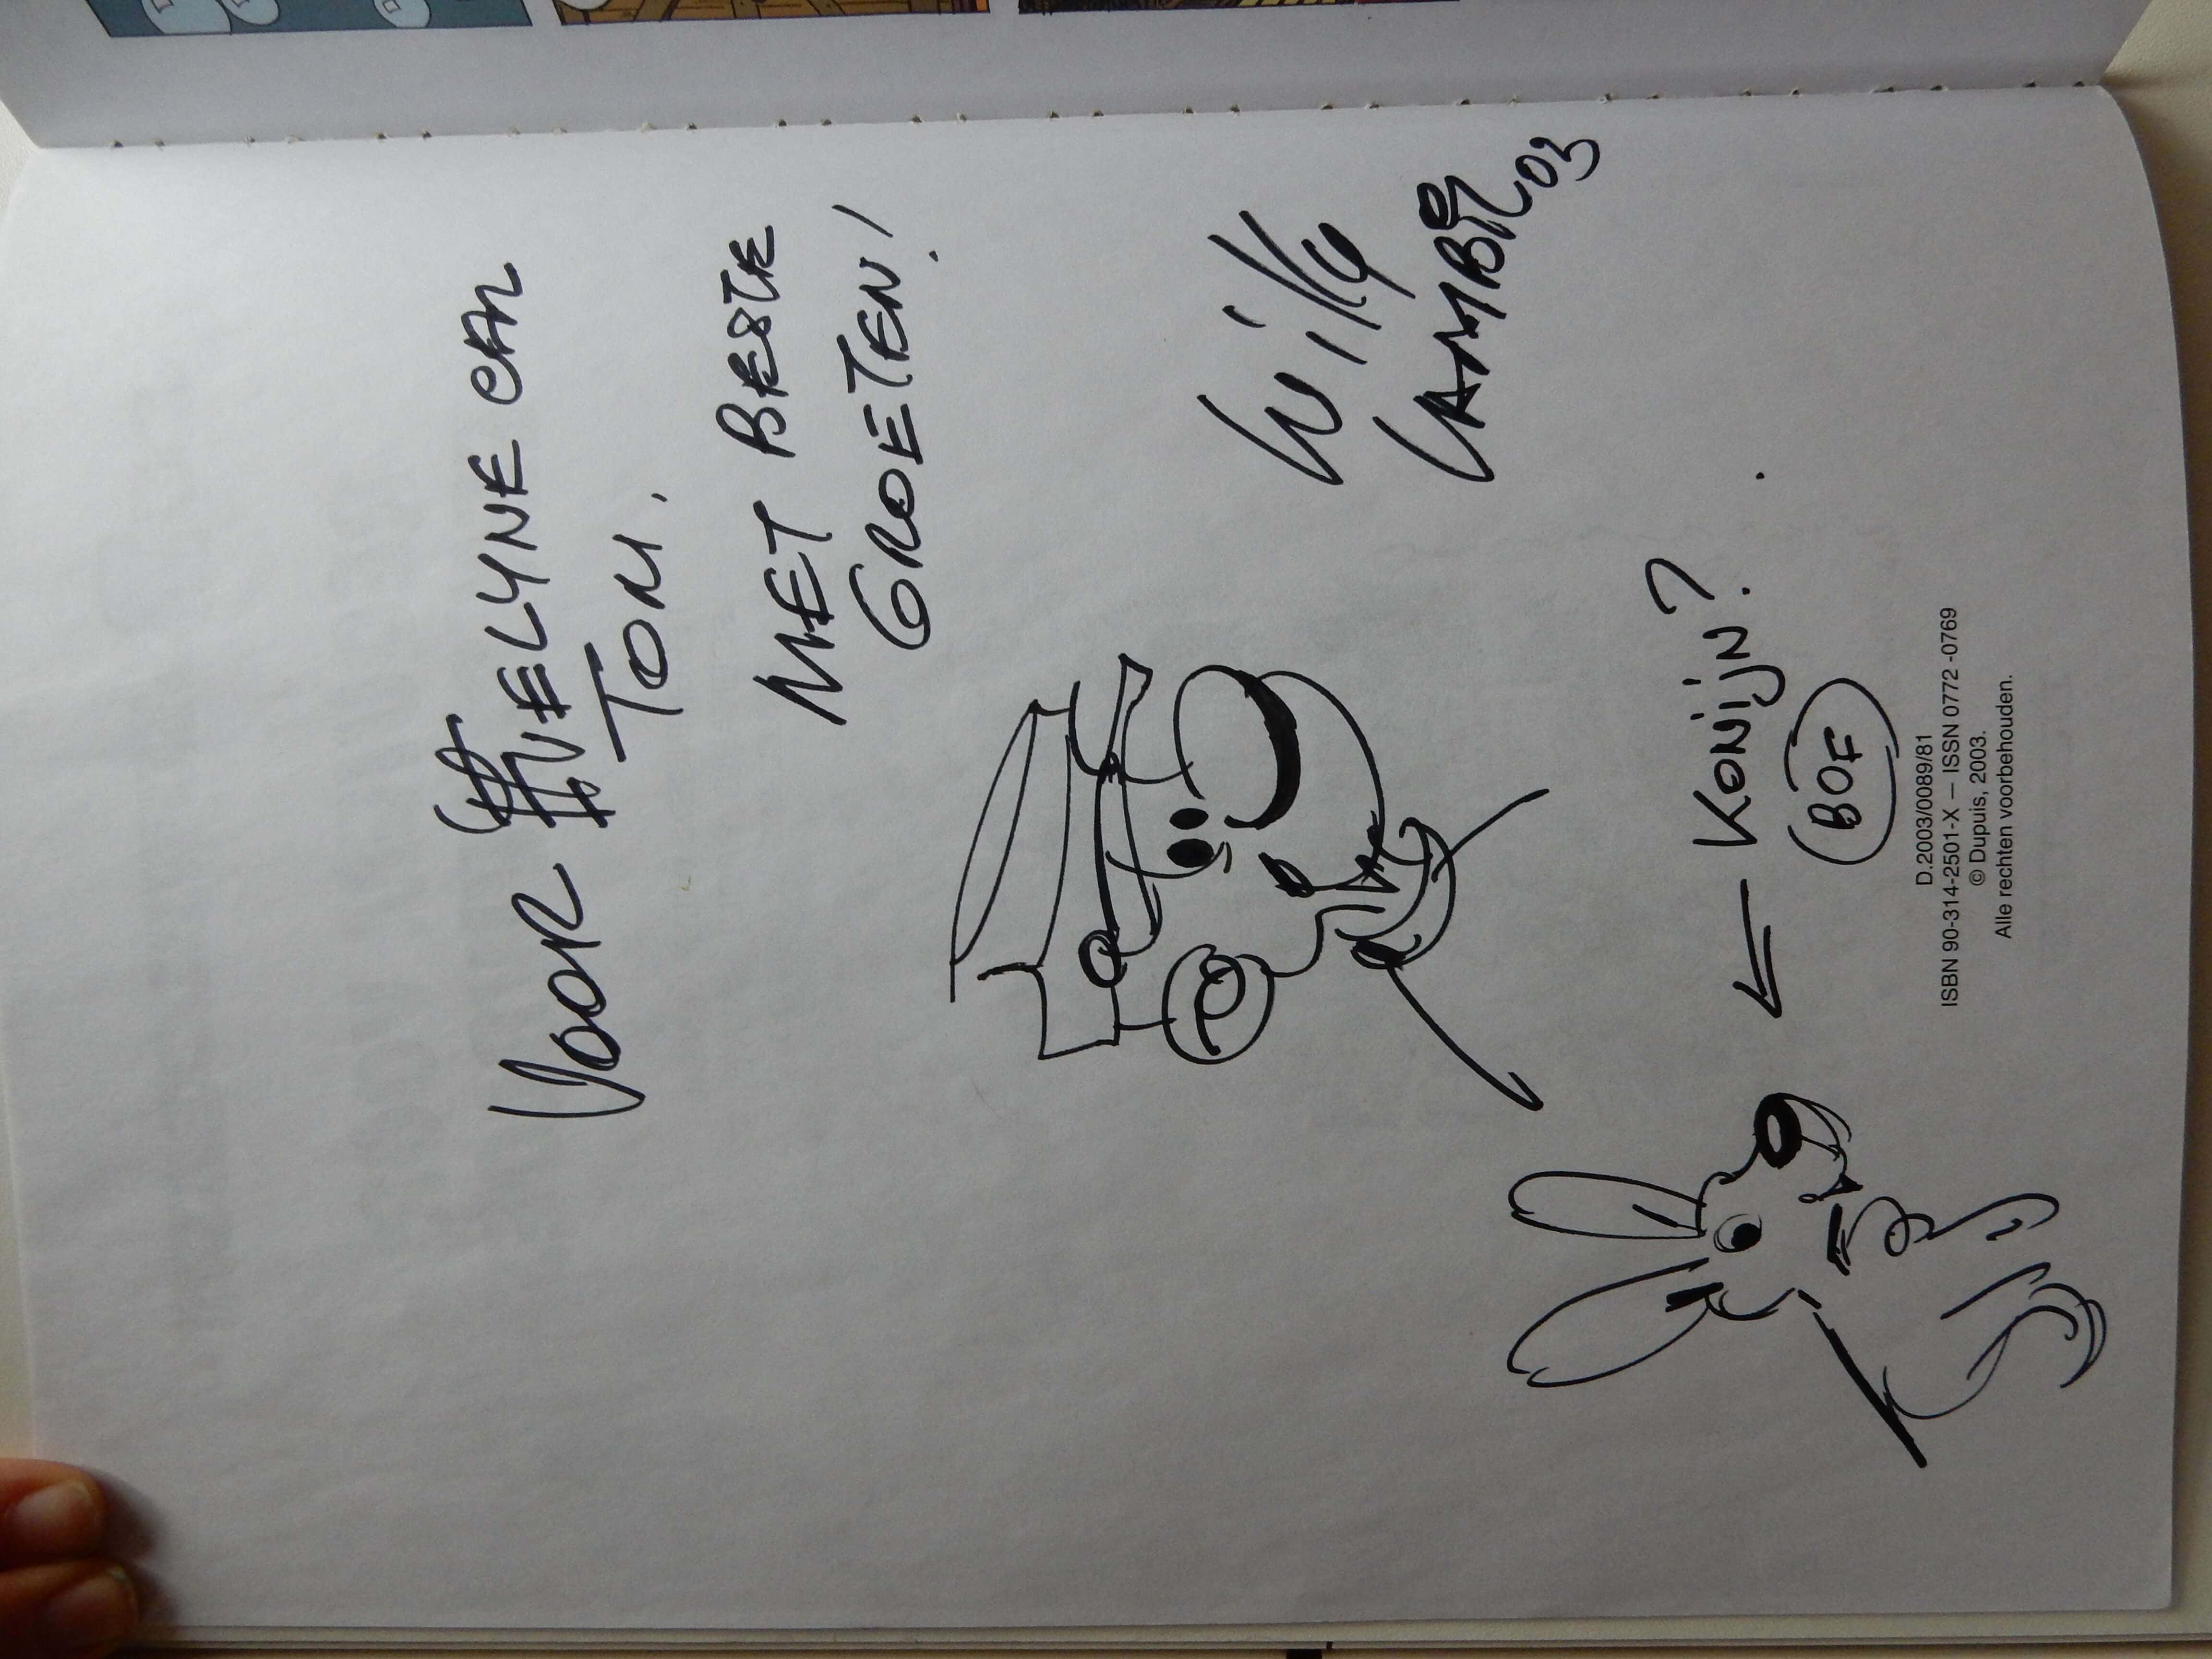 VOOR EVELYNE EN
TOM.
MET BESTE
GROETEN!
Willy
LAMBIL
03
KONIJN?
BOF
D.2003/0089/81
ISBN 90-314-2501-X — ISSN 0772 -0769
© Dupuis, 2003.
Alle rechten voorbehouden.